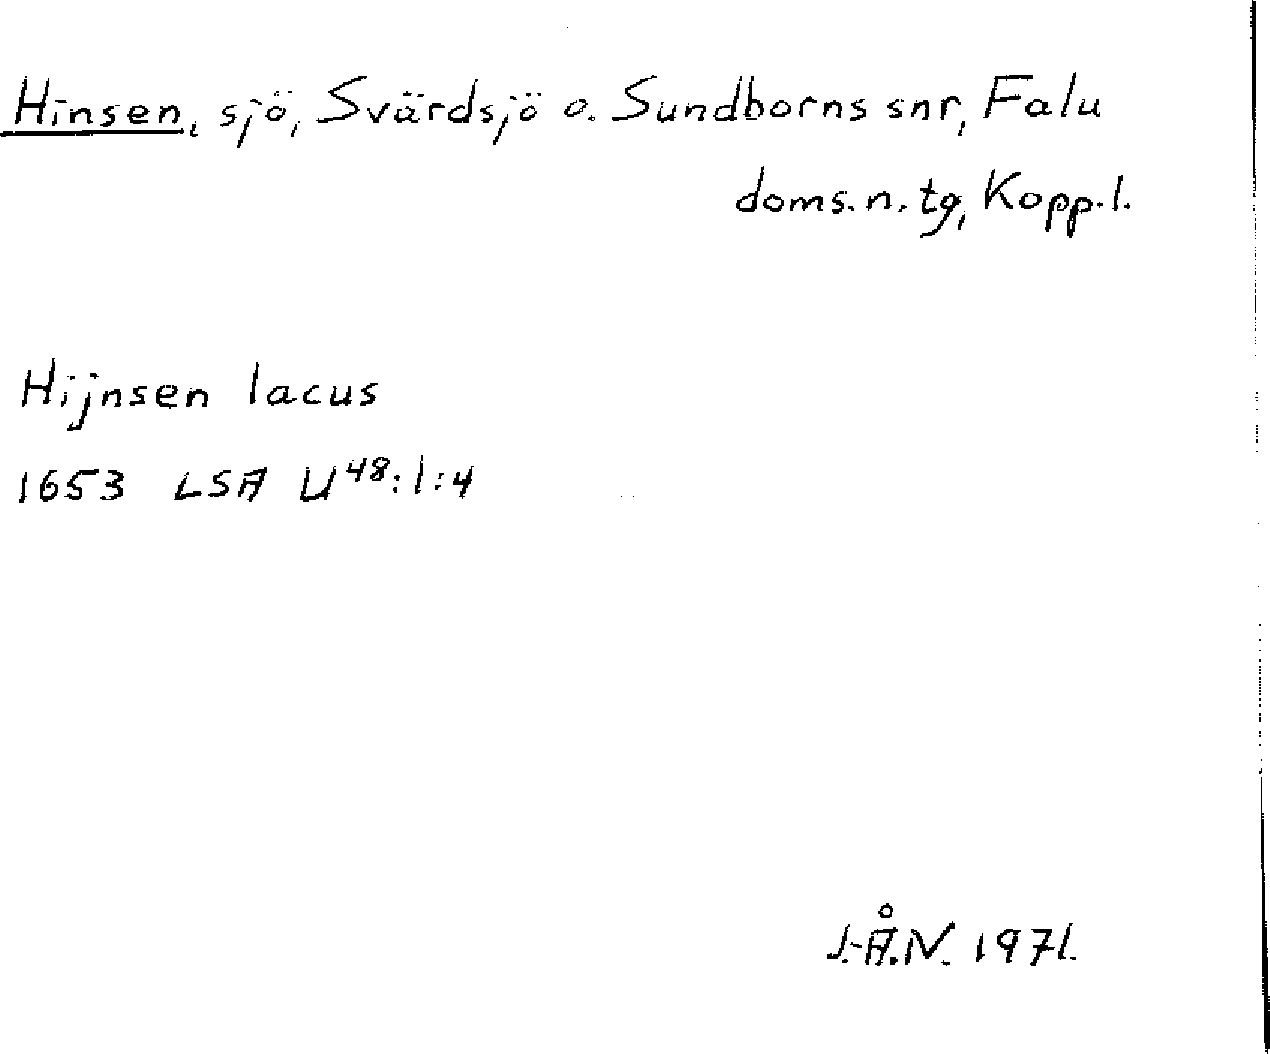 Hinsen, sjö, Svärdsjö o. Sundborns snr, Falu
doms. n. tg, Kopp. l.
Hijnsen lacus
1653 LSA U48:1:4
J.-Å.N. 1971.